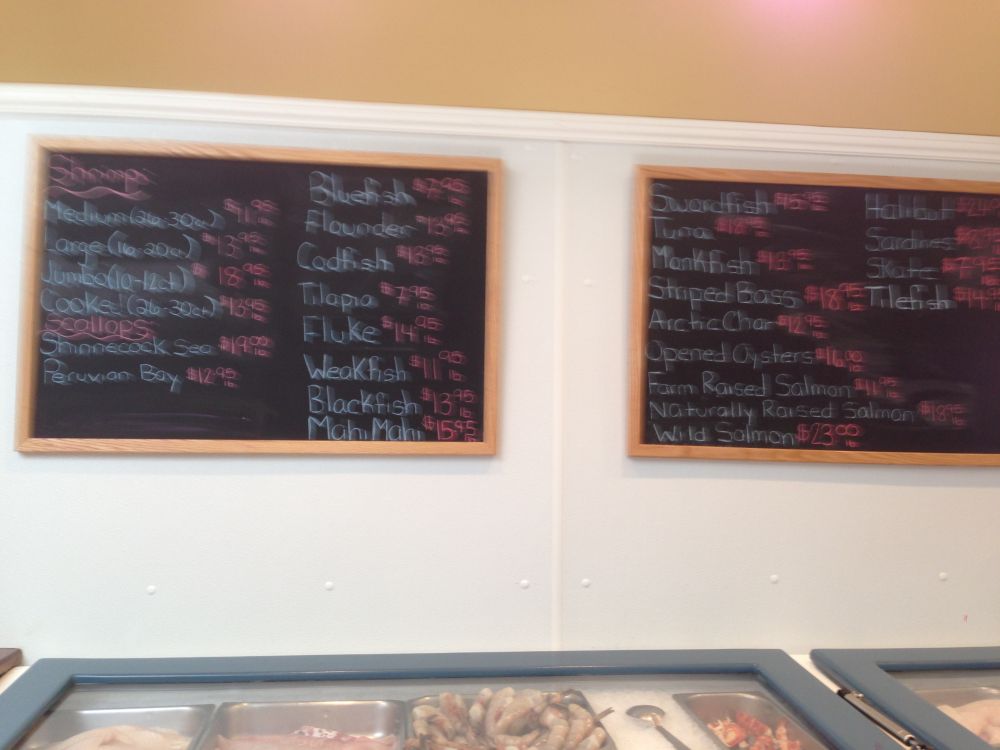 Shrimp
Medium (26-30ct) $11.95 lb
Large (16-20ct) $13.95 lb
Jumbo (10-12ct) $18.95 lb
Cooked (26-30ct) $13.95 lb
Scallops
Shinnecock Sea $19.00 lb
Peruvian Bay $12.95 lb
Bluefish $7.95
Flounder $13.95
Codfish $13.95
Tilapia $7.95 lb
Fluke $14.95 lb
Weakfish $11.95 lb
Blackfish $13.95 lb
Mahi Mahi $15.95 lb
Swordfish $15.95
Tuna $18.95
Monkfish $13.95
Striped Bass $18.95 lb
Arctic Char $12.95 lb
Opened Oysters $16.00
Farm Raised Salmon $11.95 lb
Naturally Raised Salmon $18.95 lb
Wild Salmon $23.00 lb
Halibut
Sardines
Skate $7.95
Tilefish